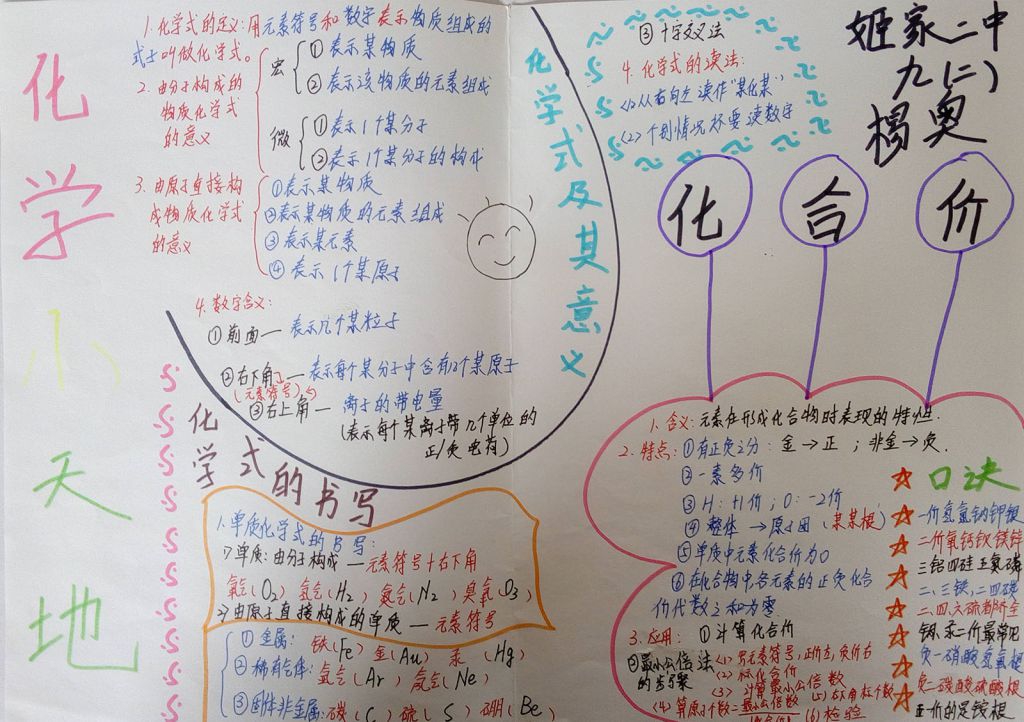 化学小天地
1.化学式的定义:用元素符号和数字表示物质组成的
式子叫做化学式。
2.由分子构成的
物质化学式
的意义
宏
①表示某物质
②表示该物质的元素组成
微
①表示1个某分子
②表示1个某分子的构成
3.由原子直接构
成物质化学式
的意义
①表示某物质
②表示某物质的元素组成
③表示某元素
④表示1个某原子
4.数字含义:
①前面—表示几个某粒子
②右下角—表示每个某分子中含有几个某原子
(元素符号)
③右上角—离子的带电量
(表示每个某离子带几个单位的
正/负电荷)
化学式及其意义
化学式的书写
1.单质化学式的书写:
单质:由分子构成—元素符号+右下角
氧气(O₂) 氢气(H₂) 氮气(N₂) 臭氧(O₃)
由原子直接构成的单质—元素符号
①金属: 铁(Fe) 金(Au) 汞(Hg)
②稀有气体: 氩气(Ar) 氖气(Ne)
③固体非金属: 碳(C) 硫(S) 硼(Be)
③十字交叉法
4.化学式的读法:
(1)从右向左读作"某化某"
(2)个别情况还要读数字
姬家二中
九(二)
杨奥
化合价
1.含义:元素在形成化合物时表现的特性.
2.特点:①有正负之分:金→正;非金→负.
②一素多价
③H:+1价;O:-2价
④整体→原子团(某某根)
⑤单质中元素化合价为0
⑥在化合物中各元素的正负化合
价代数之和为零
3.应用:①计算化合价
②最小公倍法
的步骤
(1)写元素符号,正价左,负价右
(2)标化合价
(3)计算最小公倍数
(4)算原子数=最小公倍数
(5)右下角标个数
(6)检验
口决
一价氢氯钠钾银
二价氧钙钡镁锌
三铝四硅五氮磷
二、三铁、二四碳
二、四、六硫都齐全
铜、汞二价最常见
负一硝酸氢氧根
负二碳酸硫酸根
正一价的是铵根